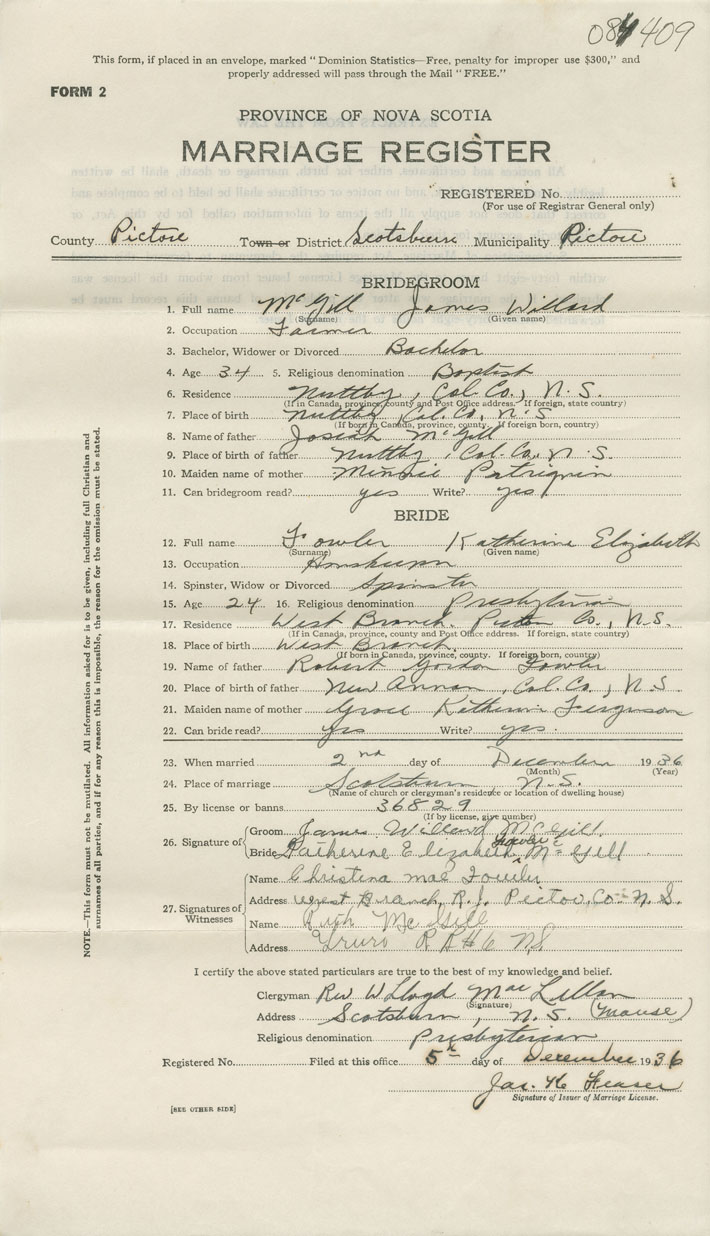 08 409
This form, if placed in an envelope, marked "Dominion Statistics—Free, penalty for improper use $300," and
properly addressed will pass through the Mail "FREE."
FORM 2
PROVINCE OF NOVA SCOTIA
MARRIAGE REGISTER
REGISTERED No.
(For use of Registrar General only)
County Pictou Town or District Scotsburn Municipality Pictou
BRIDEGROOM
1. Full name McGill James Willard
(Surname) (Given name)
2. Occupation Farmer
3. Bachelor, Widower or Divorced Bachelor
4. Age 34 5. Religious denomination Baptist
6. Residence Nuttby, Col. Co., N.S.
(If in Canada, province, county and Post Office address. If foreign, state country)
7. Place of birth Nuttby, Col. Co. N.S.
(If born in Canada, province, county. If foreign born, country)
8. Name of father Josiah McGill
9. Place of birth of father Nuttby, Col. Co. N.S.
10. Maiden name of mother Minnie Patriquin
11. Can bridegroom read? yes Write? yes
BRIDE
12. Full name Fowler Katherine Elizabeth
(Surname) (Given name)
13. Occupation
14. Spinster, Widow or Divorced Spinster
15. Age 24 16. Religious denomination Presbyterian
17. Residence West Branch. Pictou Co., N.S.
(If in Canada, province, county and Post Office address. If foreign, state country)
18. Place of birth West Branch.
(If born in Canada, province, county. If foreign born, country)
19. Name of father Robert Gordon Fowler
20. Place of birth of father New Annan, Col. Co., N.S.
21. Maiden name of mother Grace Katherine Ferguson
22. Can bride read? yes Write? yes.
23. When married 2nd day of December 1936
(Month) (Year)
24. Place of marriage Scotsburn N.S.
(Name of church or clergyman's residence or location of dwelling house)
25. By license or banns 36829
(If by license, give number)
26. Signature of Groom James Willard McGill.
Bride Katherine Elizabeth Fowler McGill.
27. Signatures of Witnesses
Name Christina Mae Fowler
Address West Branch, R.J. Pictou, Co. N.S.
Name Ruth McGill
Address Truro RR#6 NS
I certify the above stated particulars are true to the best of my knowledge and belief.
Clergyman Rev W Lloyd MacLellan
(Signature)
Address Scotsburn, N.S. (Manse)
Religious denomination Presbyterian
Registered No. Filed at this office 5th day of December 1936
Jas. H. Fraser
Signature of Issuer of Marriage License.
[SEE OTHER SIDE]
NOTE.—This form must not be mutilated. All information asked for is to be given, including full Christian and
surnames of all parties, and if for any reason this is impossible, the reason for the omission must be stated.